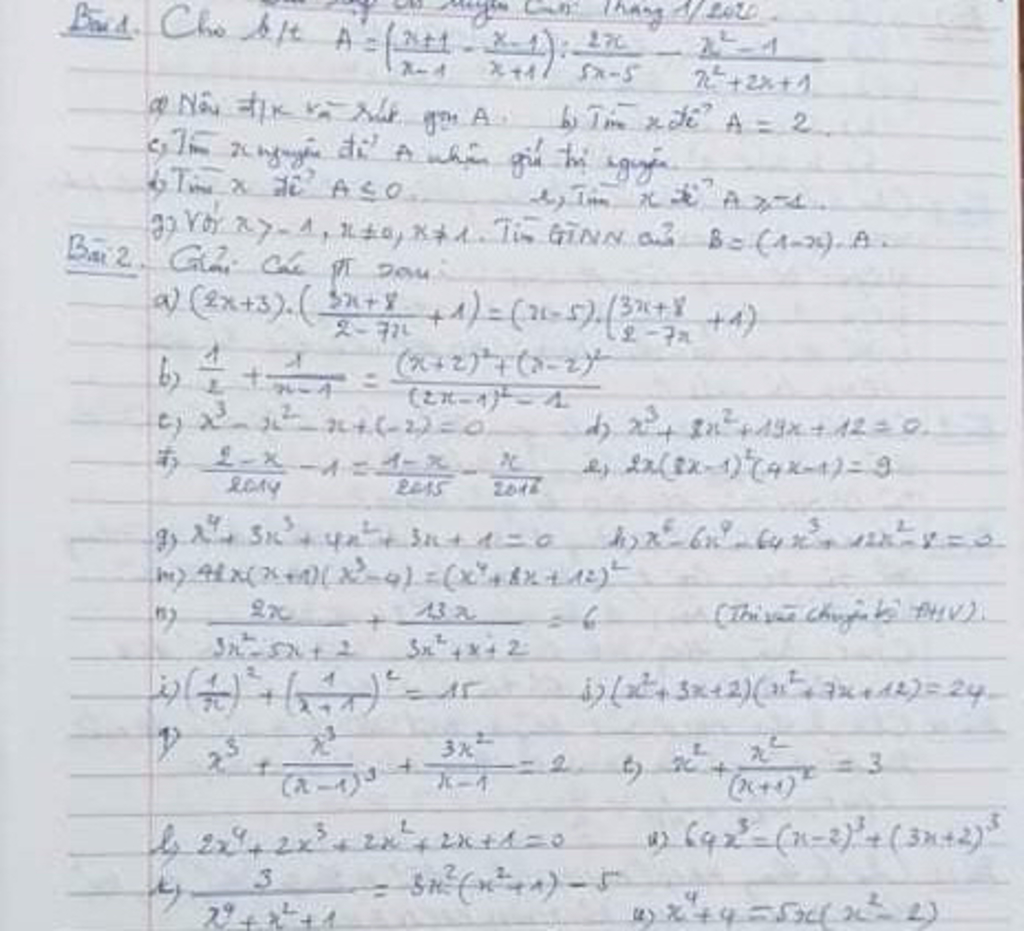 Bài 1. Cho b/t A = ((x+1)/(x-1) - (x-1)/(x+1)) : 2x/(5x-5) - (x²-1)/(x²+2x+1)
a) Nêu đ/k và rút gọn A. b) Tìm x để A = 2.
c) Tìm x nguyên để A nhận giá trị nguyên.
d) Tìm x để A ≤ 0. e) Tìm x để A ≥ -1.
g) Với x > -1, x ≠ 0, x ≠ 1. Tìm GTNN của B = (1-x).A.
Bài 2. Giải các pt sau:
a) (2x+3).((3x+8)/(2-7x) + 1) = (x-5).((3x+8)/(2-7x) + 1)
b) 1/2 + 1/(x-1) = ((x+2)²+(x-2)²)/((2x-1)²-1)
c) x³ - x² - x + (-2) = 0 d) x³ + 8x² + 19x + 12 = 0.
f) (2-x)/2014 - 1 = (1-x)/2015 - x/2016 e) 2x(8x-1)²(4x-1) = 9
g) x⁴ + 3x³ + 4x² + 3x + 1 = 0 h) x⁶ - 6x⁴ - 64x³ + 12x² - 8 = 0
m) 48x(x+1)(x³-4) = (x⁴+8x+12)²
n) 2x/(3x²-5x+2) + 13x/(3x²+x+2) = 6 (Thi vào chuyên).
i) (1/x)² + (1/(x+1))² = 15 j) (x²+3x+2)(x²+7x+12) = 24.
q) x³ + x³/(x-1)³ + 3x²/(x-1) = 2 t) x² + x²/(x+1)² = 3
l) 2x⁴ + 2x³ + 2x² + 2x + 1 = 0 64x³ = (x-2)³ + (3x+2)³
k) 3/(x⁴+x²+1) = 3x²(x²+1) - 5
u) x⁴ + 4 = 5x(x²-2)